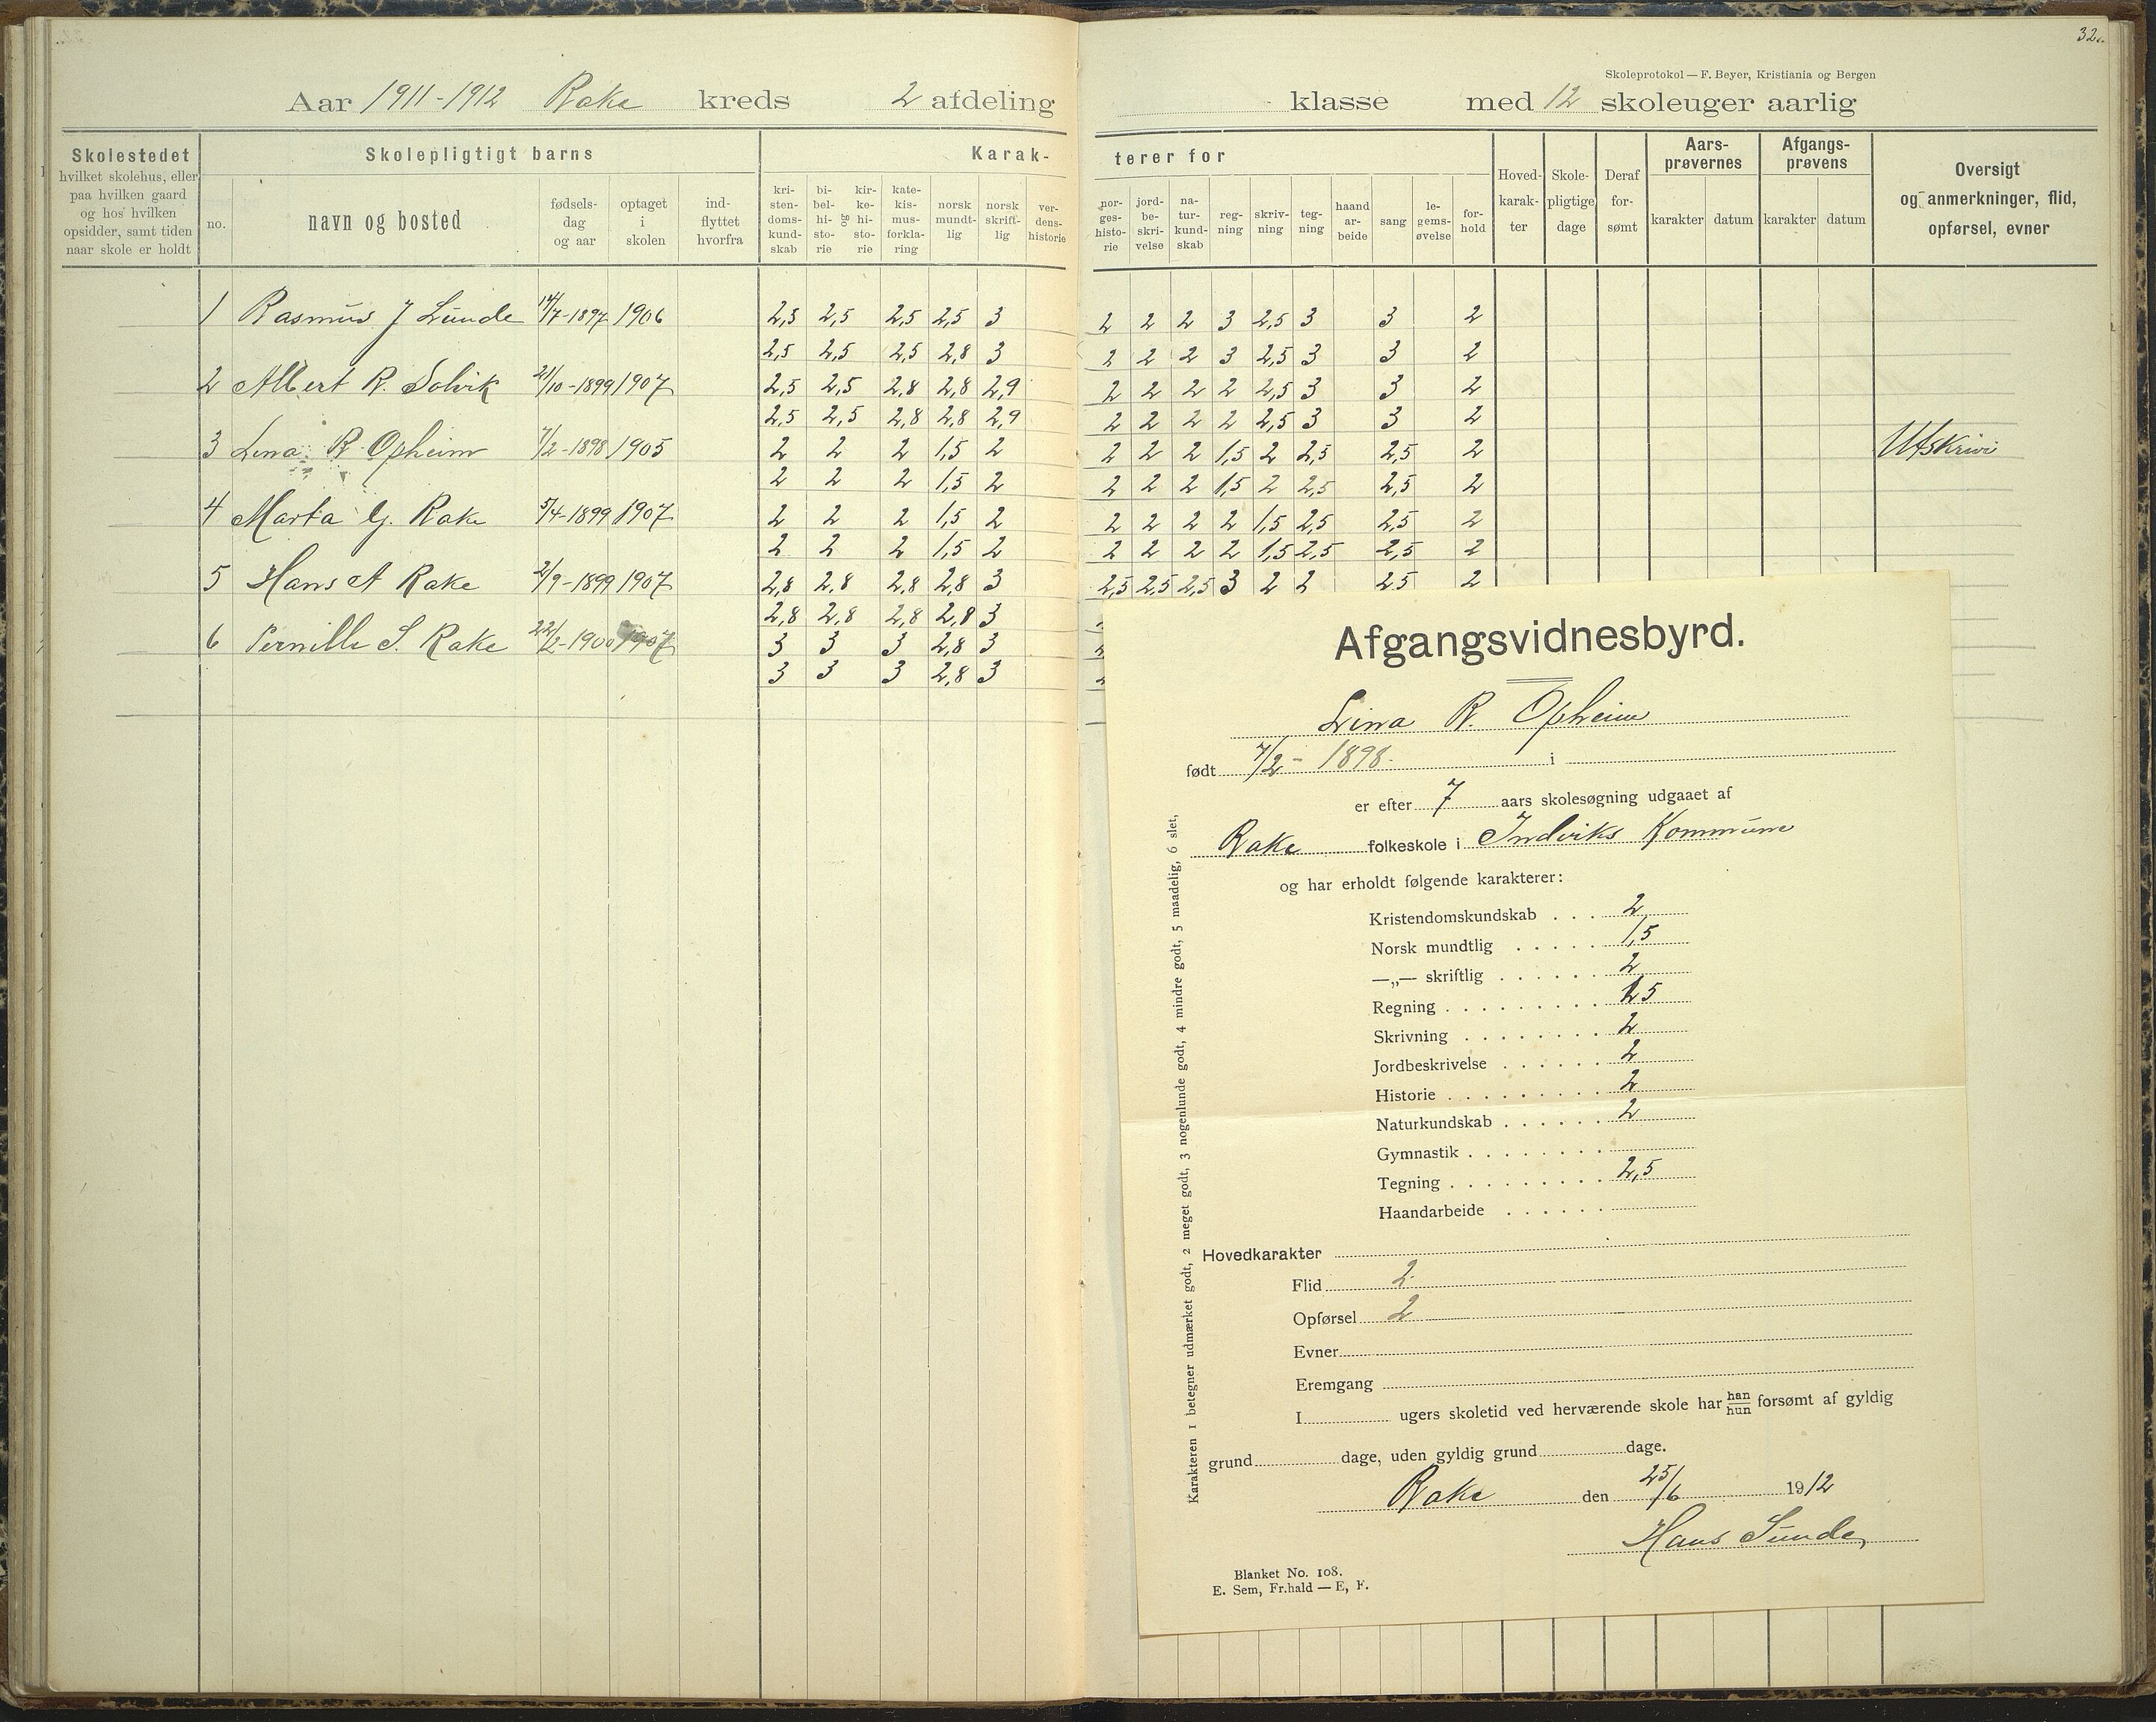 32.
Skoleprotokol — F. Beyer, Kristiania og Bergen
Aar 1911-1912 Rake kreds 2 afdeling klasse med 12 skoleuger aarlig
Skolestedet
hvilket skolehus, eller
paa hvilken gaard
og hos hvilken
opsidder, samt tiden
naar skole er holdt
Skolepligtigt barns
no.
navn og bosted
fødsels-
dag
og aar
optaget
i
skolen
ind-
flyttet
hvorfra
Karak-
kri-
sten-
doms-
kund-
skab
bi-
bel-
hi-
sto-
rie
og
kir-
ke-
hi-
sto-
rie
kate-
kis-
mus-
forkla-
ring
norsk
mundt-
lig
norsk
skrift-
lig
ver-
dens-
historie
terer for
nor-
ges-
histo-
rie
jord-
be-
skri-
velse
na-
tur-
kund-
skab
reg-
ning
skriv-
ning
teg-
ning
haand
ar-
beide
sang
le-
gems-
øvelse
for-
hold
Hoved-
karak-
ter
Skole-
pligtige
dage
Deraf
for-
sømt
Aars-
prøvernes
karakter datum
Afgangs-
prøvens
karakter datum
Oversigt
og anmerkninger, flid,
opførsel, evner
1 Rasmus J Lunde 14/7-1897 1906 2,5 2,5 2,5 2,5 3 2 2 2 3 2,5 3 3 2
2,5 2,5 2,5 2,8 3 2 2 2 3 2,5 3 3 2
2 Albert R. Solvik 21/10-1899 1907 2,5 2,5 2,8 2,8 2,9 2 2 2 2 2,5 3 3 2
2,5 2,5 2,8 2,8 2,9 2 2 2 2 2,5 3 3 2
3 Lina R Opheim 7/2-1898 1905 2 2 2 1,5 2 2 2 2 1,5 2 2,5 2,5 2 Utskriv
2 2 2 1,5 2 2 2 2 1,5 2 2,5 2,5 2
4 Marta G. Rake 5/4-1899 1907 2 2 2 1,5 2 2 2 2 2 1,5 2,5 2,5 2
2 2 2 1,5 2 2 2 2 2 1,5 2,5 2,5 2
5 Hans A Rake 2/9-1899 1907 2,8 2,8 2,8 2,8 3 2,5 2,5 2,5 3 2 2 2,5 2
2,8 2,8 2,8 2,8 3
6 Pernille S. Rake 22/2-1900 1907 3 3 3 2,8 3
3 3 3 2,8 3
Afgangsvidnesbyrd.
Lina R. Opheim
født 7/2 - 1898. i
er efter 7 aars skolesøgning udgaaet af
Rake folkeskole i Indviks Kommune
og har erholdt følgende karakterer:
Kristendomskundskab . . . 2
Norsk mundtlig . . . . . 1,5
—„— skriftlig . . . . . . 2
Regning . . . . . . . . . 1,5
Skrivning . . . . . . . . 2
Jordbeskrivelse . . . . . . 2
Historie . . . . . . . . . 2
Naturkundskab . . . . . . 2
Gymnastik . . . . . . . .
Tegning . . . . . . . . . 2,5
Haandarbeide . . . . . .
Hovedkarakter
Flid 2
Opførsel 2
Evner
Eremgang
I ugers skoletid ved herværende skole har han/hun forsømt af gyldig
grund dage, uden gyldig grund dage.
Rake den 25/6 1912
Hans Sunde
Blanket No. 108.
E. Sem, Fr.hald — E, F.
Karakteren 1 betegner udmærket godt, 2 meget godt, 3 nogenlunde godt, 4 mindre godt, 5 maadelig, 6 slet,